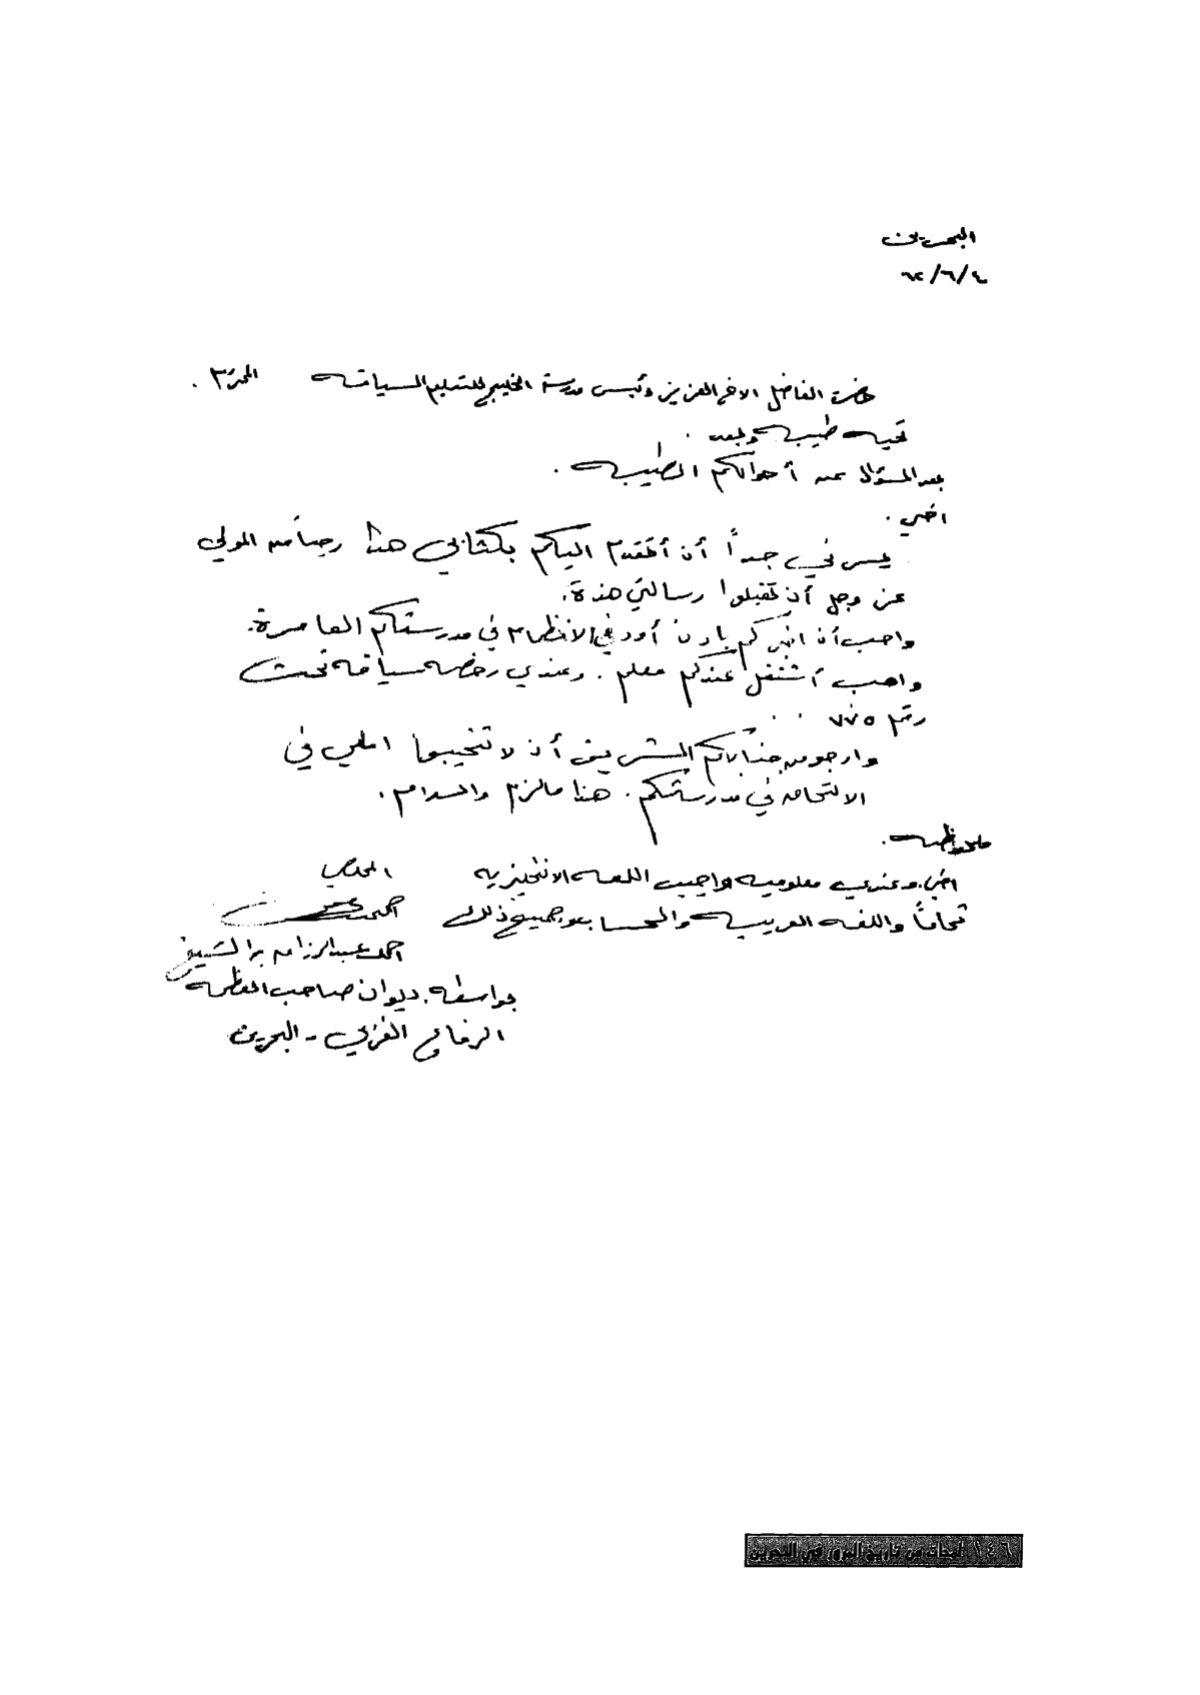 البحرين
٤/٦/٦٢
حضرة الفاضل الاخ العزيز رئيس مدرسة الخليج للتعليم السياقه المحترم.
تحيه طيبه وبعد.
بعد السؤال عن أحوالكم الطيبه.
اخي.
يسرني جداً أن أتقدم اليكم بكتابي هذا رجياً من المولى
عز وجل أن تقبلوا رسالتي هذة.
واحب أن اخبركم بان أود في الانظمام في مدرستكم العامرة.
واحب أشتغل عندكم معلم. وعندي رخصه سياقه تحت
رقم ٧٧٥
وارجو من جنابكم الشريف أن لا تخيبوا املي في
الالتحاق في مدرستكم. هذا مالزم والسلام.
ملاحظه.
اخي. وعندي معلوميه واجيب اللغه الانجليزيه
تماماً واللغه العربيه والحساب وجميع ذلك
المخلص
احمد
احمد عبدالرزاق
بواسطه. ديوان صاحب العظمه
الرفاع الغربي - البحرين
١٤٦ لمحات من تاريخ المرور في البحرين